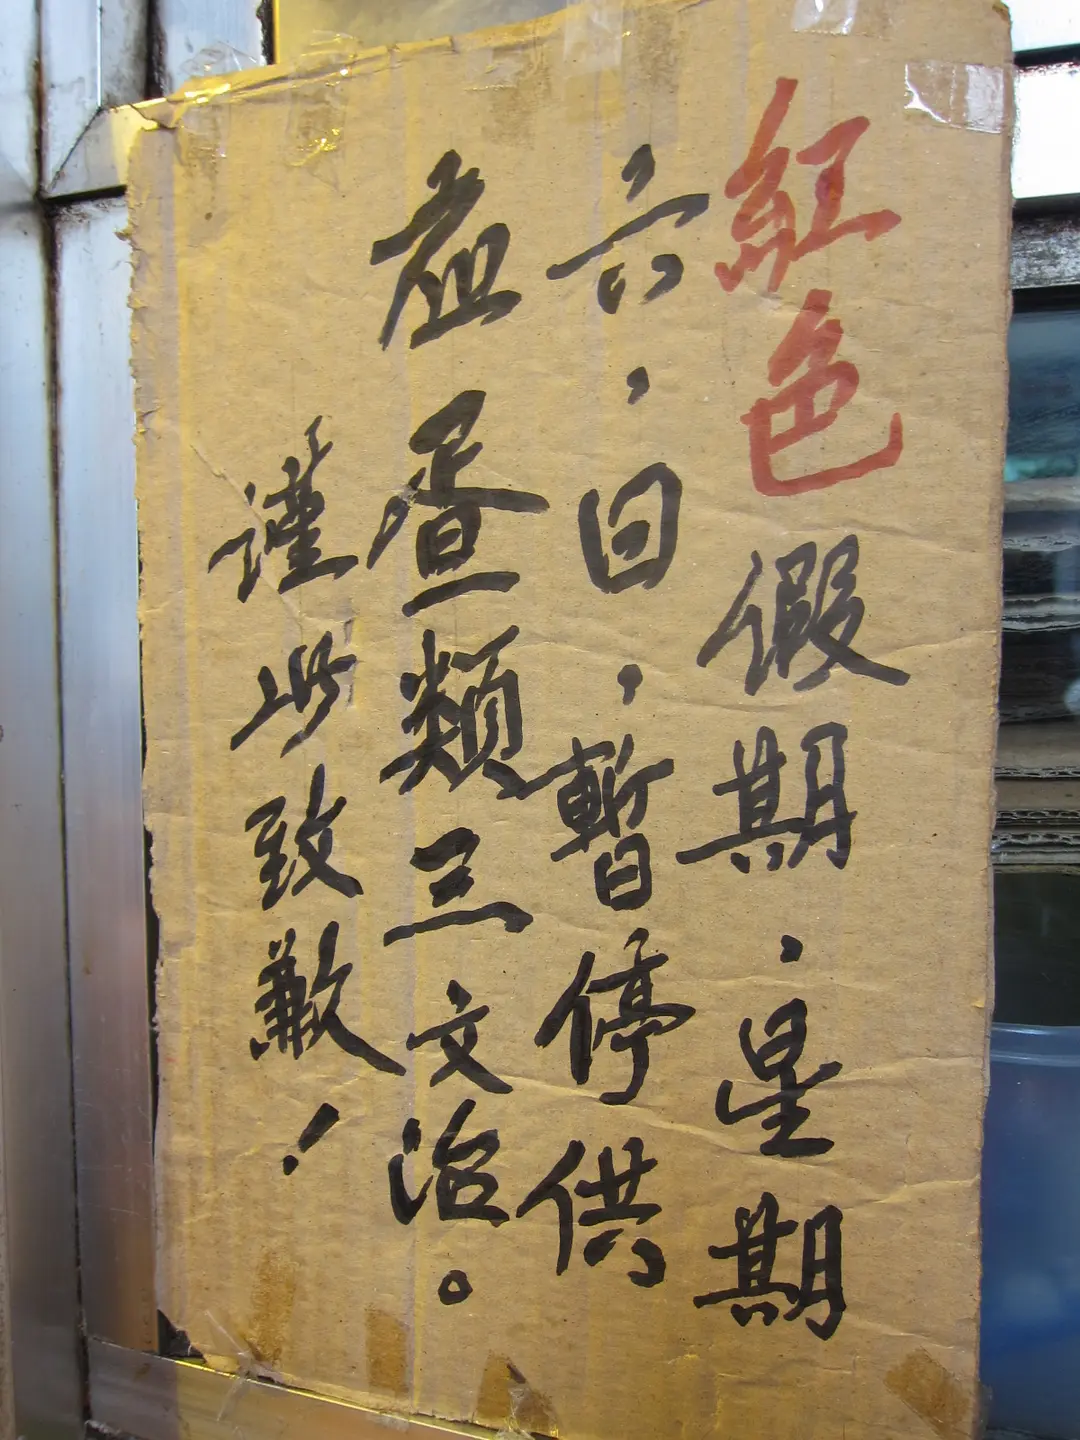 紅色假期、星期
六、日、暫停供
应疍類三文治。
謹此致歉！